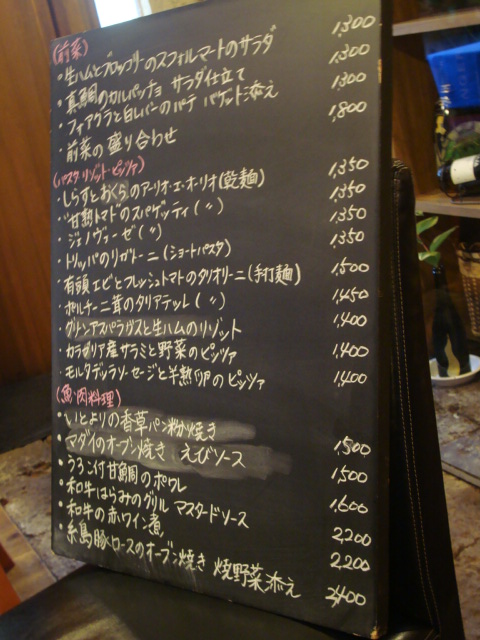 (前菜)
・生ハムとブロッコリーのスフォルマートのサラダ 1,300
・真鯛のカルパッチョ サラダ仕立て 1,300
・フォアグラと白レバーのパテ バゲット添え 1,300
・前菜の盛り合わせ 1,800
(パスタ・リゾット・ピッツァ)
・しらすとおくらのアーリオ・エ・オーリオ(乾麺) 1,350
・甘熟トマトのスパゲッティ(〃) 1,350
・ジェノヴェーゼ(〃) 1,350
・トリッパのリガトーニ(ショートパスタ) 1,350
・有頭エビとフレッシュトマトのタリオリーニ(手打麺) 1,500
・ポルチーニ茸のタリアテッレ(〃) 1,450
・グリーンアスパラガスと生ハムのリゾット 1,400
・カラブリア産サラミと野菜のピッツァ 1,400
・モルタデッラソーセージと半熟卵のピッツァ 1,400
(魚・肉料理)
・いとよりの香草パン粉焼き 1,500
・マダイのオーブン焼き えびソース 1,500
・うろこ付甘鯛のポワレ 1,600
・和牛はらみのグリル マスタードソース 2,200
・和牛の赤ワイン煮 2,200
・糸島豚ロースのオーブン焼き 焼野菜添え 2,400